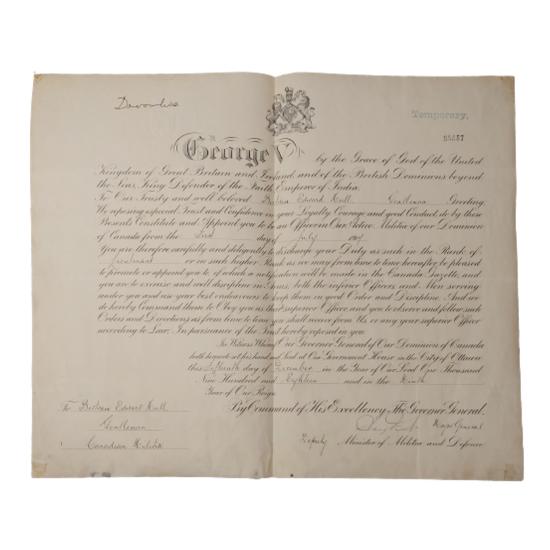 Devonshire
Temporary.
George V by the Grace of God of the United
Kingdom of Great Britain and Ireland, and of the British Dominions beyond
the Seas, King, Defender of the Faith, Emperor of India.
To Our Trusty and well beloved Edward Hall, Gentleman Greeting,
We reposing especial Trust and Confidence in your Loyalty Courage and good Conduct do by these
Presents Constitute and Appoint you to be an Officer in Our Active Militia of our Dominion
of Canada from the First day of July
You are therefore carefully and diligently to discharge your Duty as such in the Rank of
Lieutenant or in such higher Rank as we may from time to time hereafter be pleased
to promote or appoint you to, of which a notification will be made in the Canada Gazette, and
you are to exercise and well discipline in Arms, both the inferior Officers and Men serving
under you and use your best endeavours to keep them in good Order and Discipline. And we
do hereby Command them to Obey you as their superior Officer and you to observe and follow such
Orders and Directions as from time to time you shall receive from Us, or any your superior Officer
according to Law, In pursuance of the Trust hereby reposed in you.
In Witness Whereof Our Governor General of Our Dominion of Canada
hath hereunto set his hand and Seal at Our Government House in the City of Ottawa
this day of December in the Year of Our Lord One Thousand
Nine Hundred and Eighteen and in the Ninth
Year of Our Reign.
By Command of His Excellency The Governor General.
To Edward Hall
Gentleman
Canadian Militia
Major General
Deputy Minister of Militia and Defence